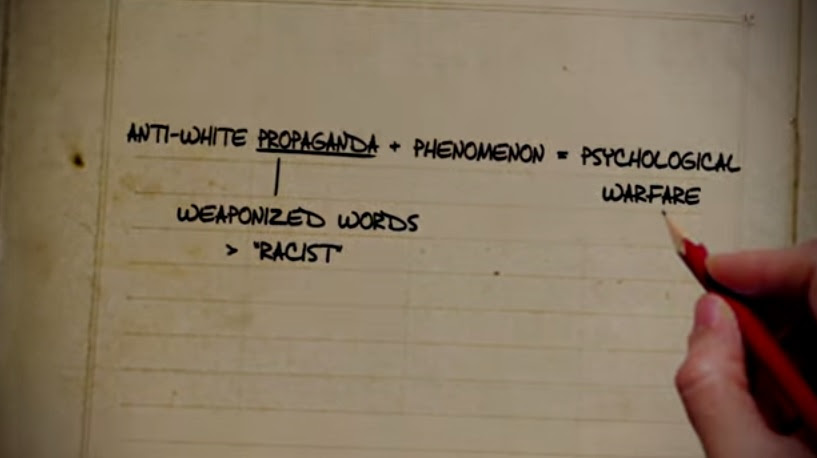 ANTI-WHITE PROPAGANDA + PHENOMENON = PSYCHOLOGICAL
WARFARE
WEAPONIZED WORDS
> "RACIST"